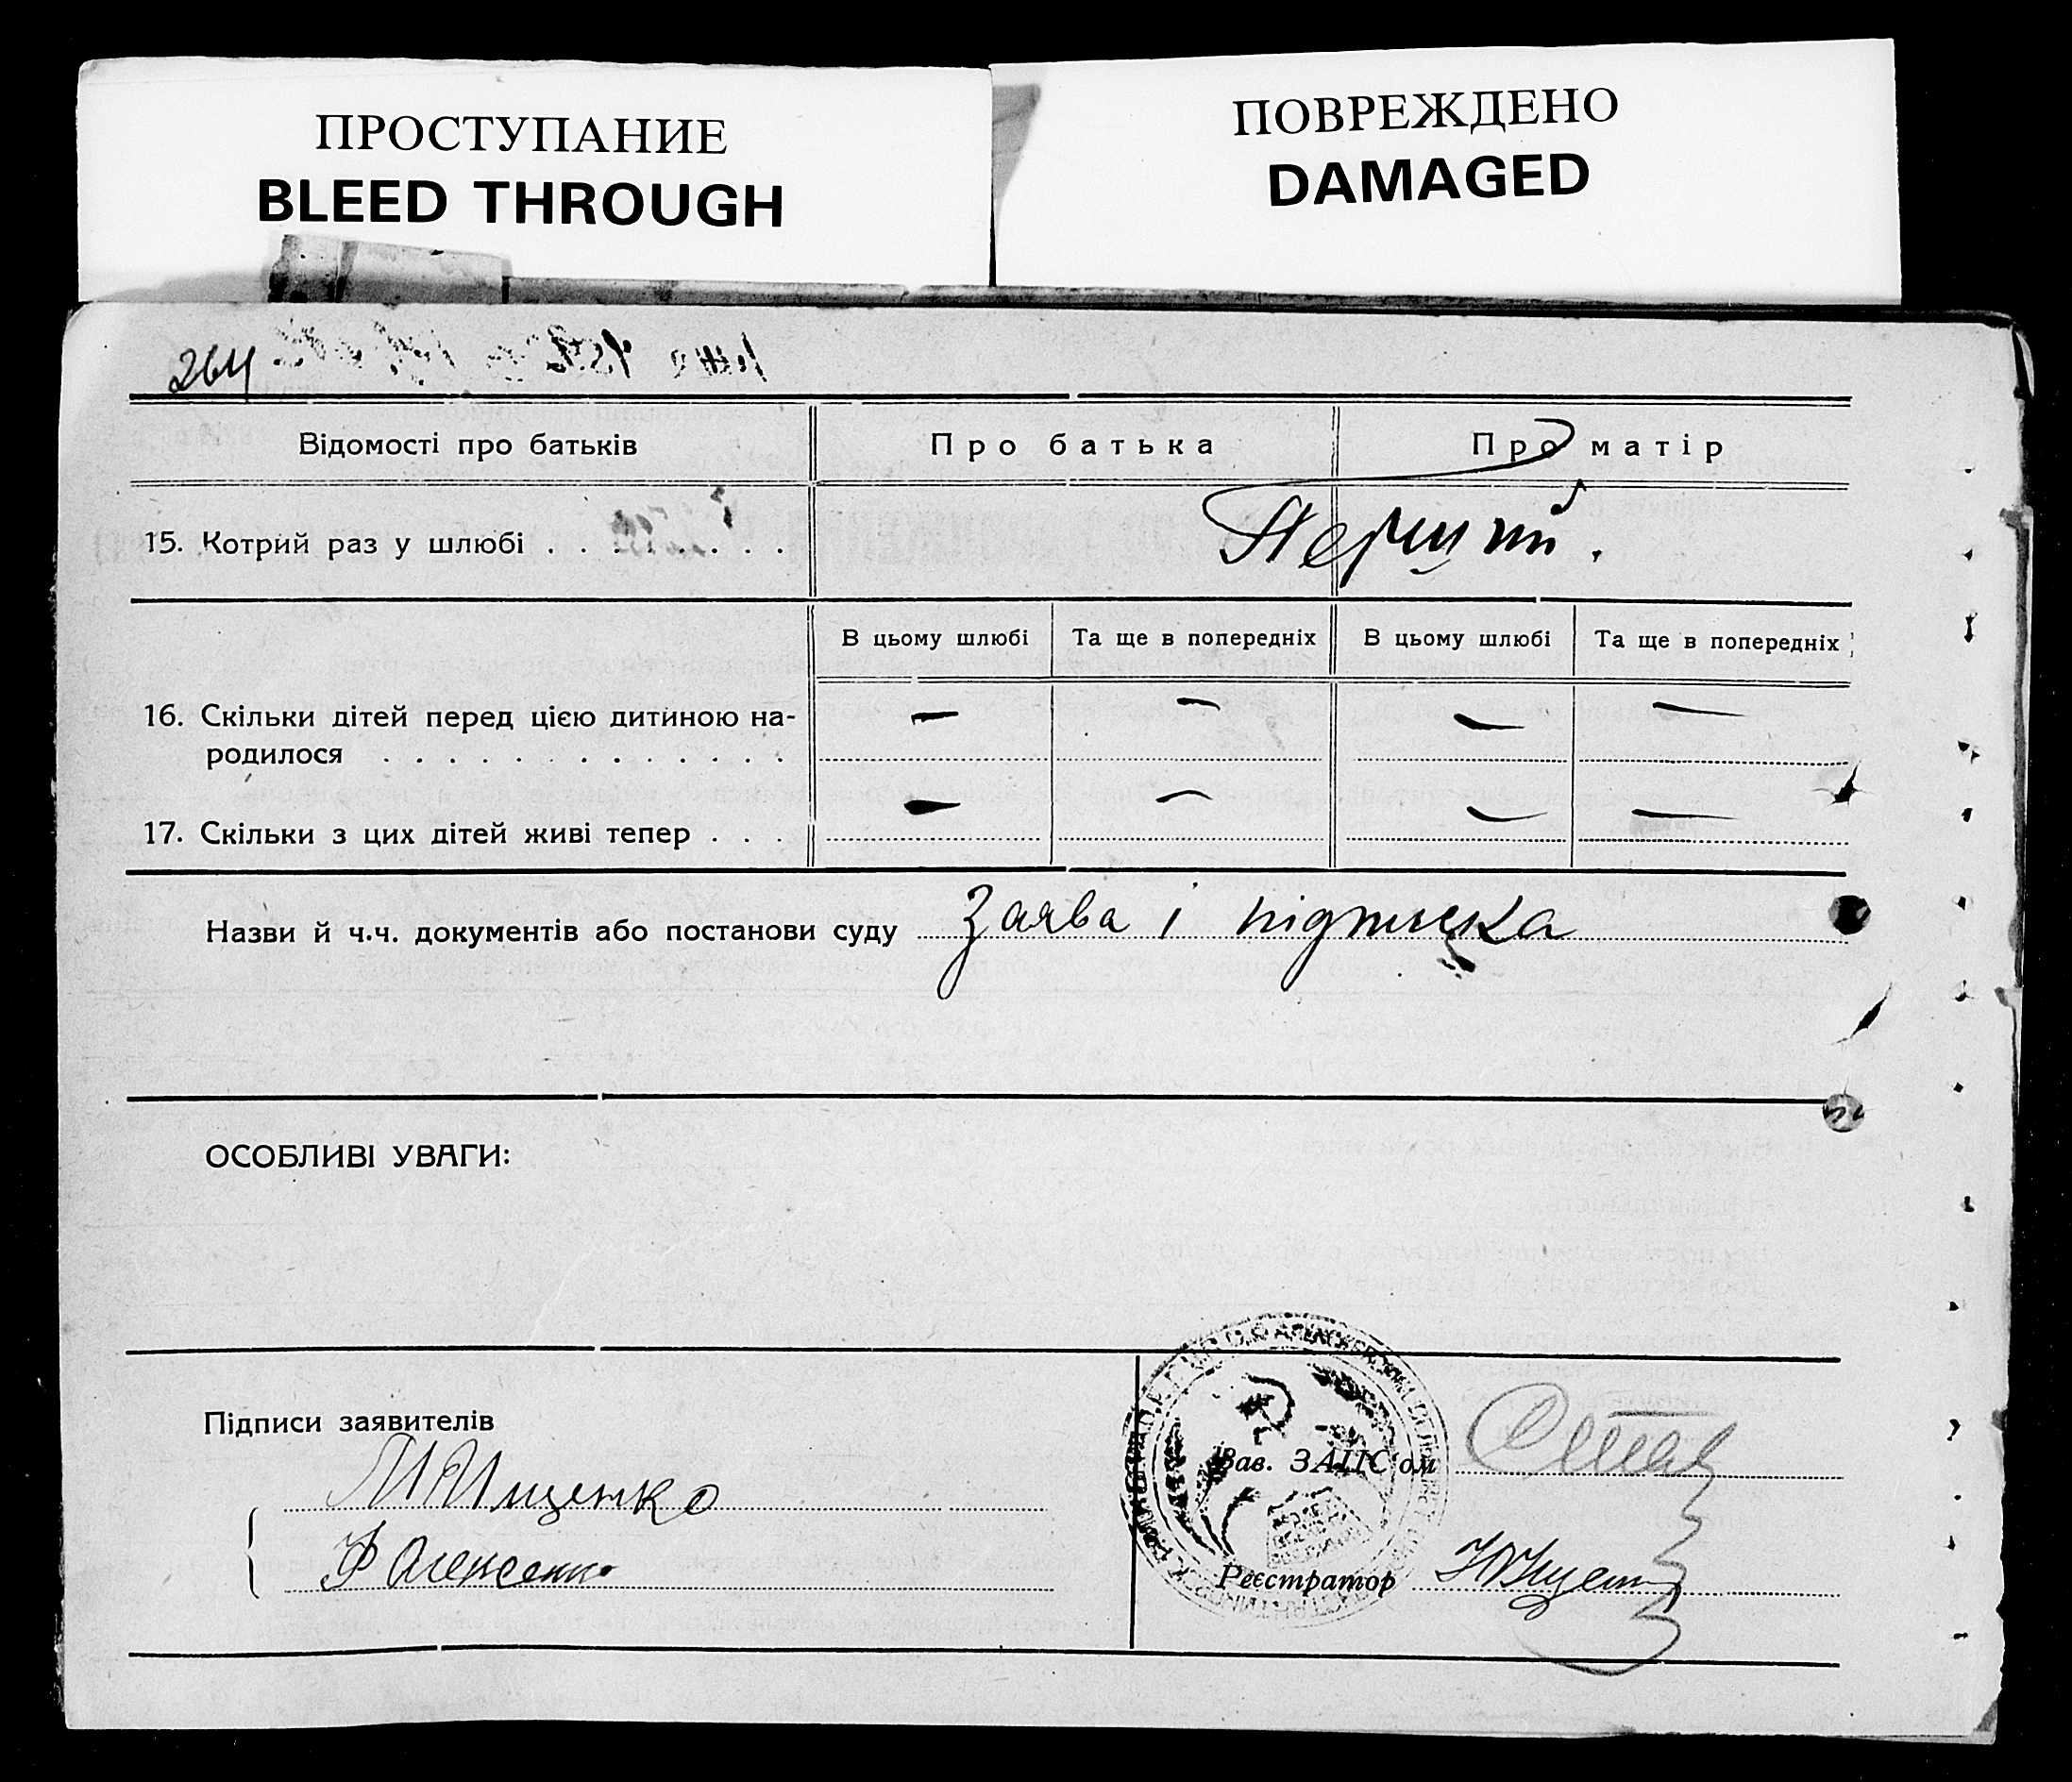 ПРОСТУПАНИЕ
BLEED THROUGH
ПОВРЕЖДЕНО
DAMAGED
264
Відомості про батьків
Про батька
Про матір
15. Котрий раз у шлюбі . . . . . . . .
Перший.
В цьому шлюбі
Та ще в попередніх
В цьому шлюбі
Та ще в попередніх
16. Скільки дітей перед цією дитиною на-
родилося . . . . . . . . . . . . .
— — — —
17. Скільки з цих дітей живі тепер . . .
— — — —
Назви й ч.ч. документів або постанови суду Заява і підписка
ОСОБЛИВІ УВАГИ:
Підписи заявителів
Зав. ЗАГС'ом
Реєстратор